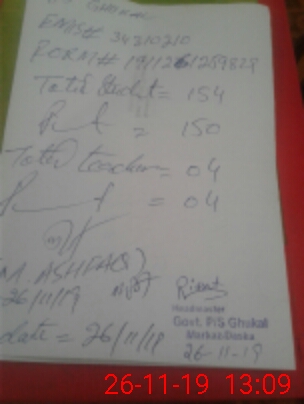 GHUKAL
EMIS# 34210210
FORM# 1911261259829
Total Student = 154
P = 150
Total teacher = 04
P = 04
(M. ASHFAQ)
26/11/19
Headmaster
Govt. P/S Ghukal
Markaz Daska
26-11-19
date = 26/11/19
26-11-19 13:09